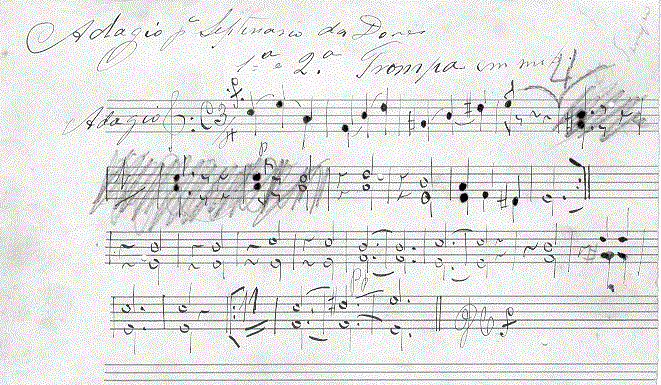 Adagio pª Septenario da Dores
1.ª e 2.ª Trompa em mi
4
Adagio
p
pp